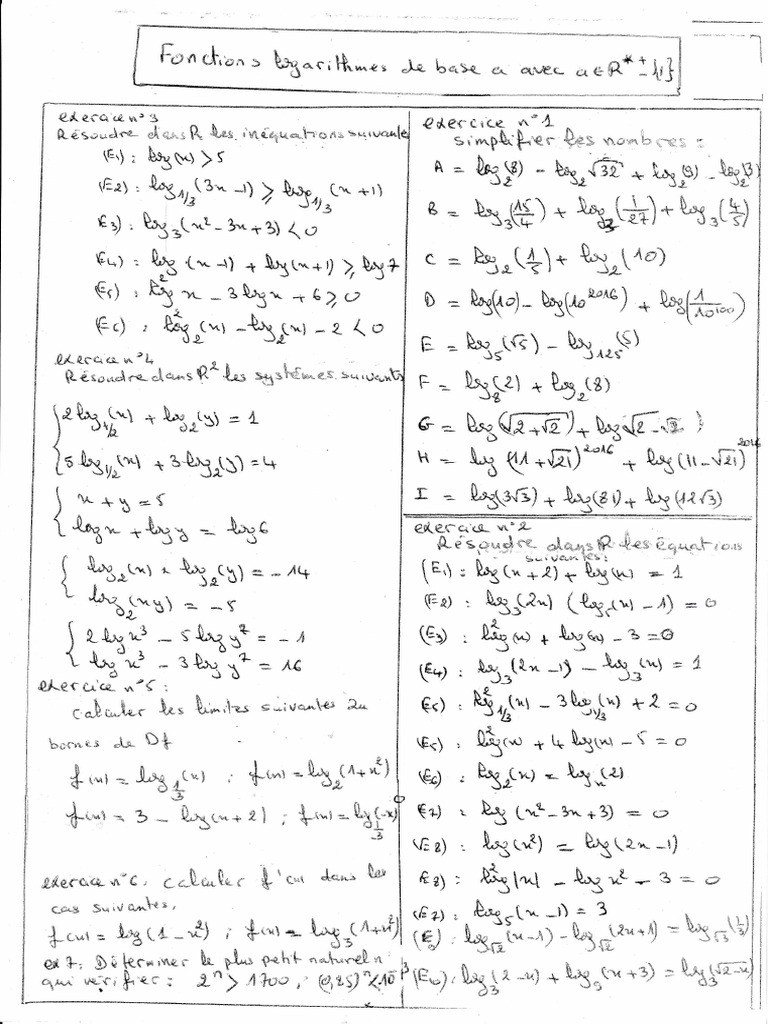 Fonctions logarithmes de base a avec a∈R*⁺-{1}
exercice n°3
Résoudre dans R les inéquations suivante
(E1) : log(x) > 5
(E2) : log_{1/3}(3x-1) ≥ log_{1/3}(x+1)
(E3) : log_3(x²-3x+3) < 0
(E4) : log(x-1) + log(x+1) ≥ log 7
(E5) : log²x - 3logx + 6 ≥ 0
(E6) : log²_2(x) - log_2(x) - 2 < 0
exercice n°4
Résoudre dans R² les systémes suivants
{ 2log_{1/2}(x) + log_2(y) = 1
5log_{1/2}(x) + 3log_2(y) = 4
{ x + y = 5
log x + log y = log 6
{ log_2(x) × log_2(y) = -14
log_2(xy) = -5
{ 2log x³ - 5log y² = -1
log x³ - 3log y² = 16
exercice n°5 :
calculer les limites suivantes au
bornes de Df
f(x) = log_{1/3}(x) ; f(x) = log_2(1+x²)
f(x) = 3 - log(x+2) ; f(x) = log_{1/3}(-x)
exercice n°6 . calculer f'(x) dans les
cas suivantes.
f(x) = log(1-x²) ; f(x) = log_3(1+x²)
ex 7 : Déterminer le plus petit naturel n
qui vérifier : 2ⁿ > 1700 , (0,85)ⁿ < 10⁻³
exercice n°1
simplifier les nombres :
A = log_2(8) - log_2 √32 + log_2(9) - log_2(3)
B = log_3(15/4) + log_3(1/27) + log_3(4/5)
C = log_2(1/5) + log_2(10)
D = log(10) - log(10²⁰¹⁶) + log(1/10¹⁰⁰)
E = log_5(√5) - log_125(5)
F = log_8(2) + log_2(8)
G = log(√(2+√2)) + log √(2-√2)
H = log (11+√21)²⁰¹⁶ + log(11-√21)²⁰¹⁶
I = log(3√3) + log(81) + log(12√3)
exercice n°2
Résoudre dans R les équations
suivantes :
(E1) : log(x+2) + log(x) = 1
(E2) : log_3(2x) (log_5(x) - 1) = 0
(E3) : log²(x) + log(x) - 3 = 0
(E4) : log_3(2x-1) - log_3(x) = 1
(E5) : log²_{1/3}(x) - 3log_{1/3}(x) + 2 = 0
(E5) : log²(x) + 4 log(x) - 5 = 0
(E6) : log_2(x) = log_x(2)
(E7) : log(x²-3x+3) = 0
(E8) : log(x²) = log(2x-1)
(E8) : log²|x| - log x² - 3 = 0
(E7) : log_5(x-1) = 3
(E9) : log_√2(x-1) - log_√2(2x+1) = log_√3(1/3)
(E10) : log_3(2-x) + log_9(x+3) = log_3(√2-x)